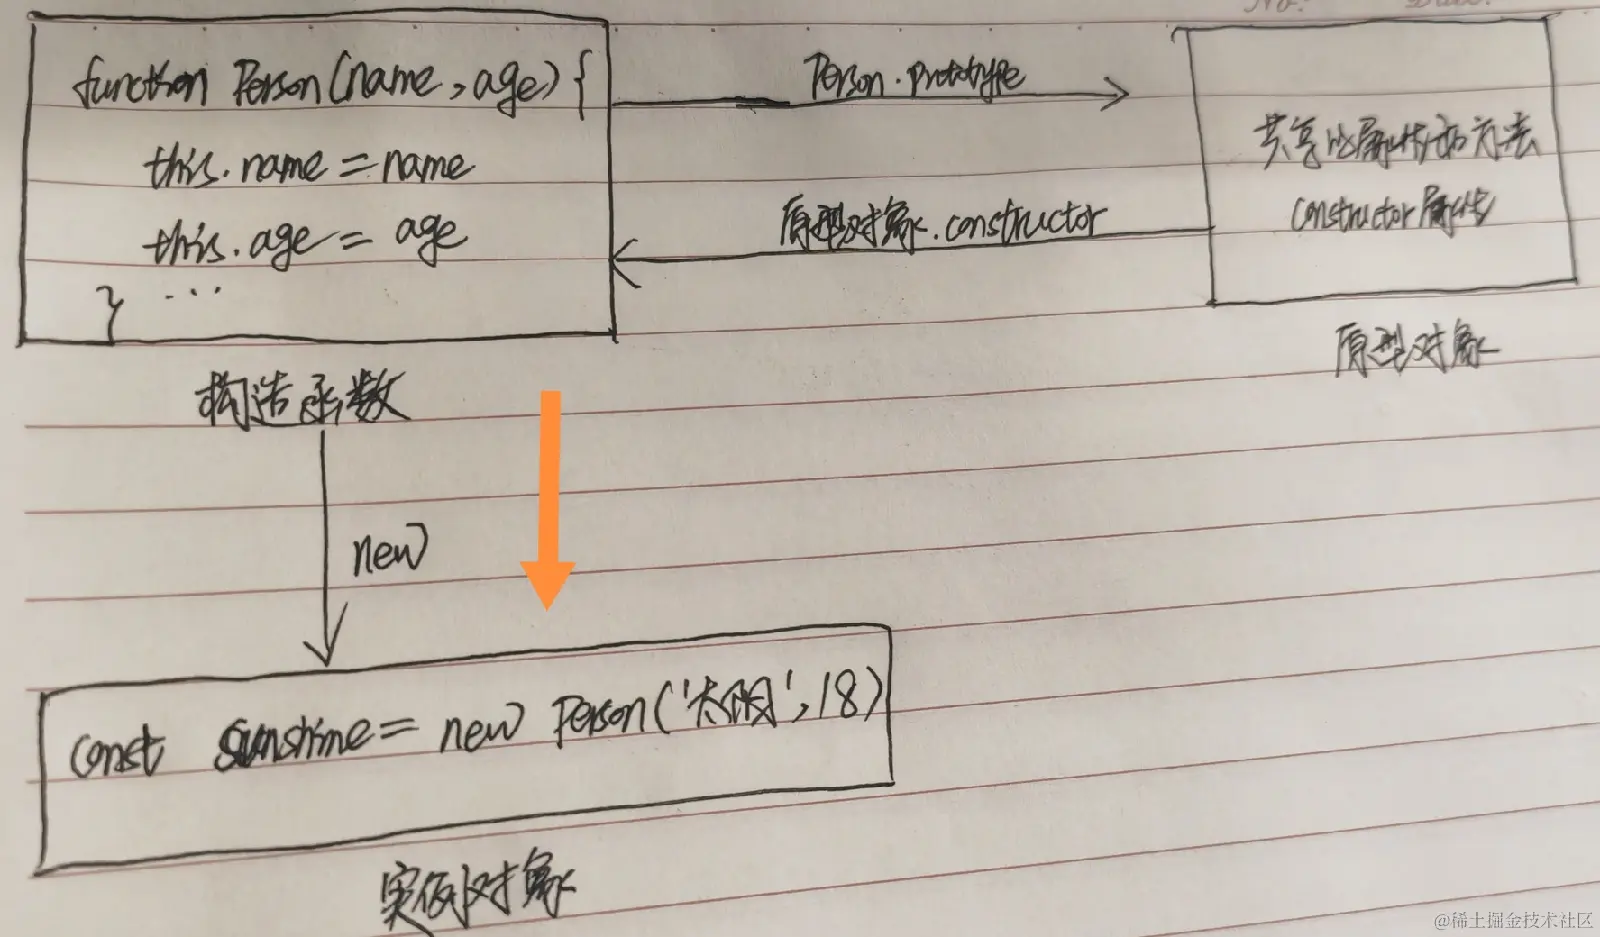 function Person(name,age){
this.name=name
this.age= age
} ...
构造函数
Person.prototype
原型对象.constructor
共享的属性和方法
constructor属性
原型对象
new
const sunshine= new Person('太阳',18)
实例对象
@稀土掘金技术社区